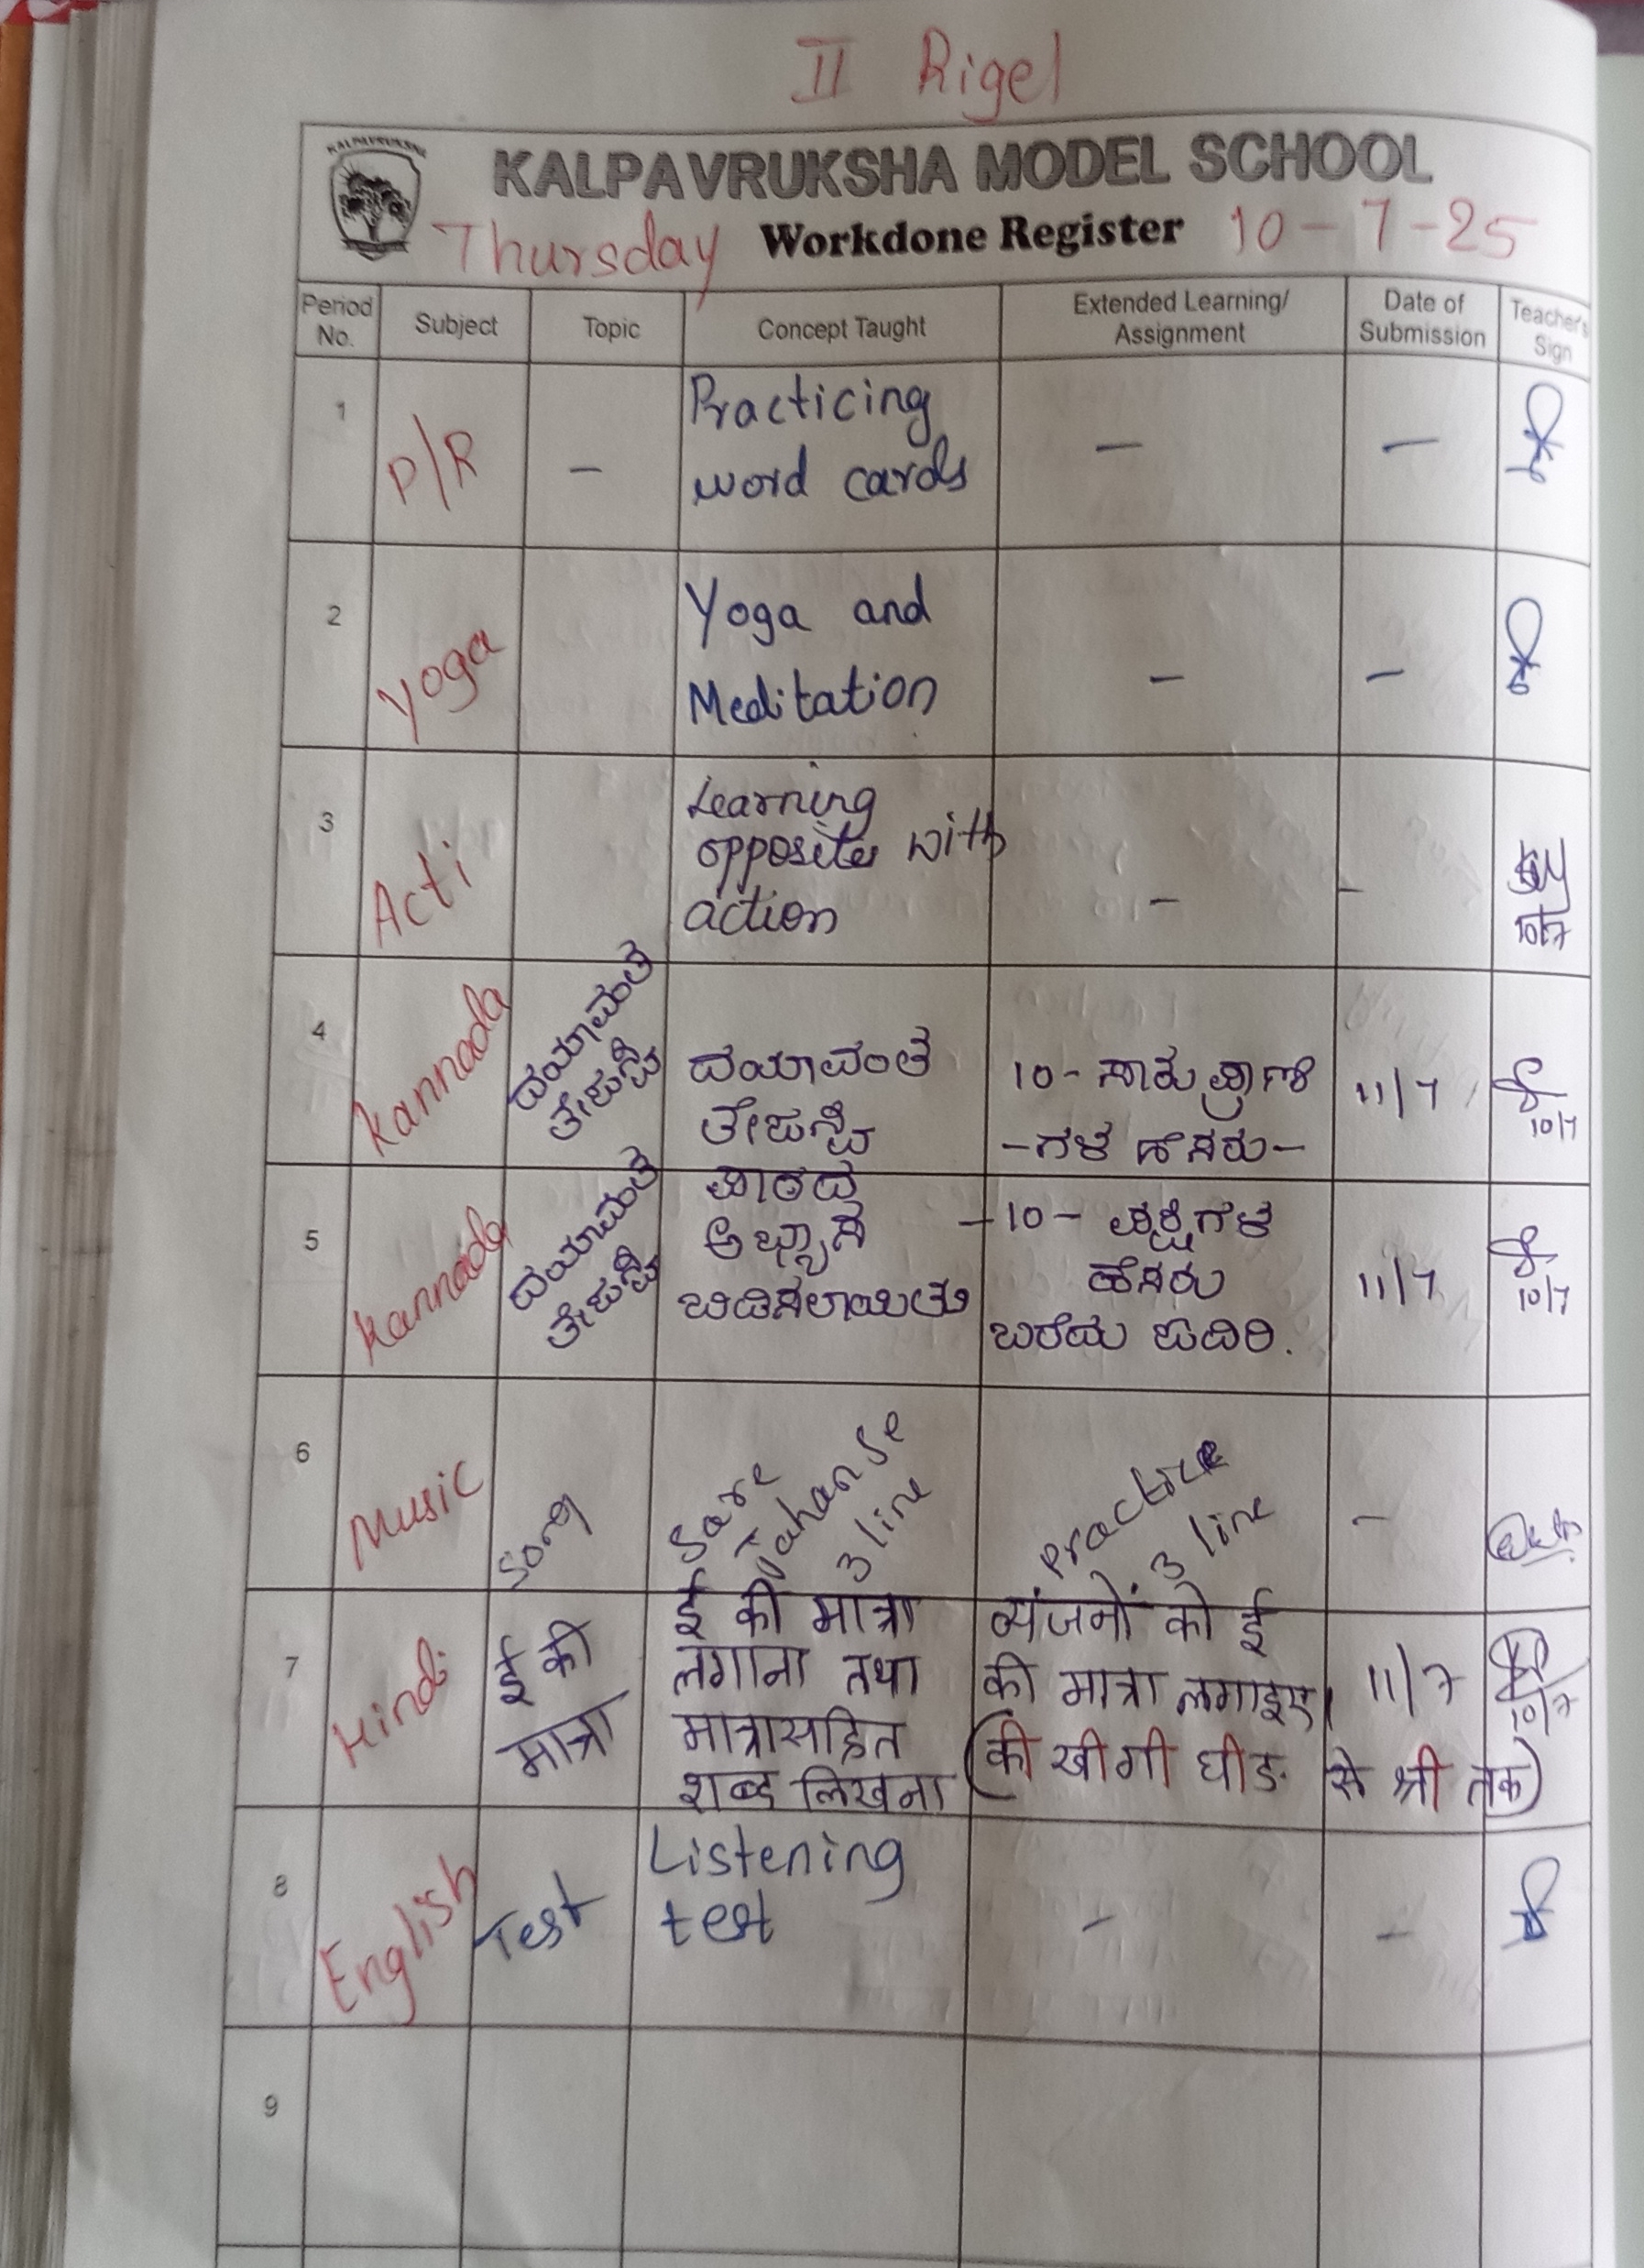 II Rigel
KALPAVRUKSHA
KALPAVRUKSHA MODEL SCHOOL
Thursday Workdone Register 10-7-25
Period No. Subject Topic Concept Taught Extended Learning/ Assignment Date of Submission Teacher's Sign
1 P/R - Practicing
word cards - -
2 Yoga Yoga and
Meditation - -
3 Acti Learning
opposites with
action - -
10/7
4 Kannada ದಯಾವಂತೆ
ತೇಜಸ್ವಿ
ದಯಾವಂತೆ
ತೇಜಸ್ವಿ
10- ಸಾಕು ಪ್ರಾಣಿ
-ಗಳ ಹೆಸರು-
11/7
10/7
5 Kannada ದಯಾವಂತೆ
ತೇಜಸ್ವಿ
ಪಾಠದ
ಅಭ್ಯಾಸ
ಬಿಡಿಸಲಾಯಿತು
-10- ಪಕ್ಷಿಗಳ
ಹೆಸರು
ಬರೆದು ಓದಿರಿ.
11/7
10/7
6 Music Song Sare
Jahan se
3 line
Practice
3 line
-
7 Hindi ई की
मात्रा
ई की मात्रा
लगाना तथा
मात्रासहित
शब्द लिखना
व्यंजनों को ई
की मात्रा लगाइए।
(की खी गी घी ङ. से श्री तक)
11/7
10/7
8 English Test Listening
test - -
9